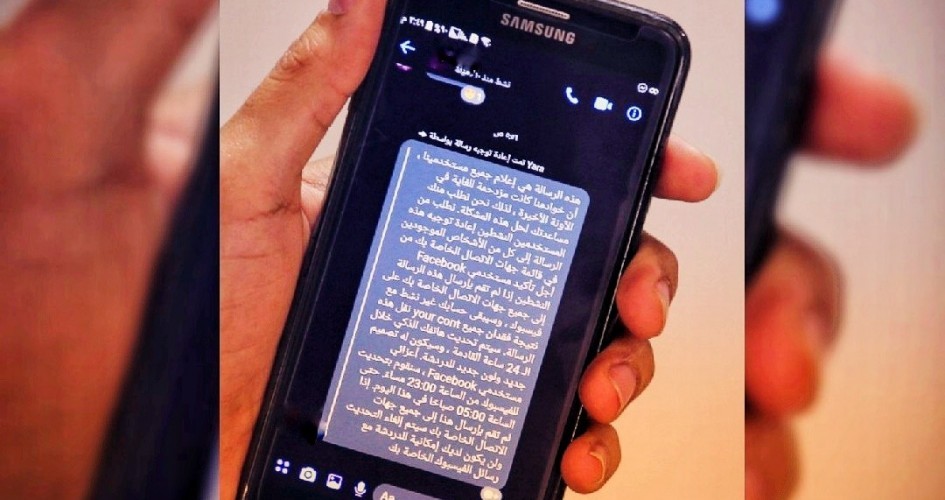 SAMSUNG
٢:٤٩ م
نشط منذ ١٠ دقيقة
٦:٥٩ ص
Yara تمت إعادة توجيه رسالة بواسطة
هذه الرسالة هي إعلام جميع مستخدمينا ،
أن خوادمنا كانت مزدحمة للغاية في
الآونة الأخيرة ، لذلك نحن نطلب منك
مساعدتك لحل هذه المشكلة. نطلب من
المستخدمين النشطين إعادة توجيه هذه
الرسالة إلى كل من الأشخاص الموجودين
في قائمة جهات الاتصال الخاصة بك من
أجل تأكيد مستخدمي Facebook
النشطين إذا لم تقم بإرسال هذه الرسالة
إلى جميع جهات الاتصال الخاصة بك على
فيسبوك ، وسيبقى حسابك غير نشط مع
نتيجة فقدان جميع your cont نقل هذه
الرسالة. سيتم تحديث هاتفك الذكي خلال
الـ 24 ساعة القادمة ، وسيكون له تصميم
جديد ولون جديد للدردشة. أعزائي
مستخدمي Facebook ، سنقوم بتحديث
للفيسبوك من الساعة 23:00 مساءً. حتى
الساعة 05:00 صباحًا في هذا اليوم. إذا
لم تقم بإرسال هذا إلى جميع جهات
الاتصال الخاصة بك سيتم إلغاء التحديث
ولن يكون لديك إمكانية للدردشة مع
رسائل الفيسبوك الخاصة بك
Aa